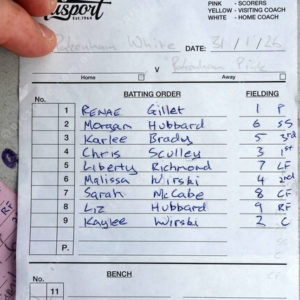 PINK - SCORERS
YELLOW - VISITING COACH
WHITE - HOME COACH
Est.1964
Pakenham White DATE: 31/1/26
V Pink
Home Away
BATTING ORDER FIELDING
No.
1 RENAE Gillet 1 P
2 Morgan Hubbard 6 SS
3 Karlee Brady 5 3rd
4 Chris Sculley 3 1st
5 Liberty Richmond 7 LF
6 Malissa Wirski 4 2nd
7 Sarah McCabe 8 CF
8 Liz Hubbard 9 RF
9 Kaylee Wirski 2 C
P.
No. BENCH
11
RF